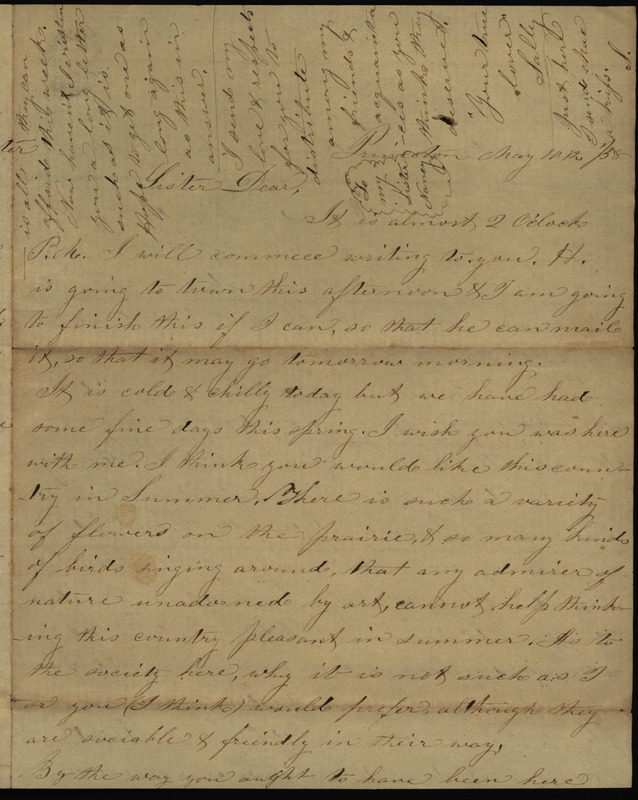 Princeton May 10th /58
Sister Dear,
It is almost 2 O'clock
P.M. I will commece writing to you. H.
is going to town this afternoon & I am going
to finish this if I can, so that he can maile
it, so that it may go tomorrow morning.
It is cold & chilly today but we have had
some fine days this spring. I wish you was here
with me. I think you would like this coun-
-try in Summer. There is such a variety
of flowers on the prairie, & so many kinds
of birds singing around, that any admirer of
nature unadorned by art, cannot help think-
-ing this country pleasant in summer. As to
the society here, why it is not such as I
or you (I think) would prefer, although they
are sociable & friendly in their way,
By the way you ought to have been here
is all they can
afford this week.
Now haven't I written
you a long letter
such as it is.
Hope to get one as
long again
as this in
answer.
I send my
love & respects
for you to
distribute
among my
friends &
acquainta
-nces as you
think they
deserve.
Your true
lover
Sally
Just here
I send thee
a kiss. S.
To
my
Sister
Nancy